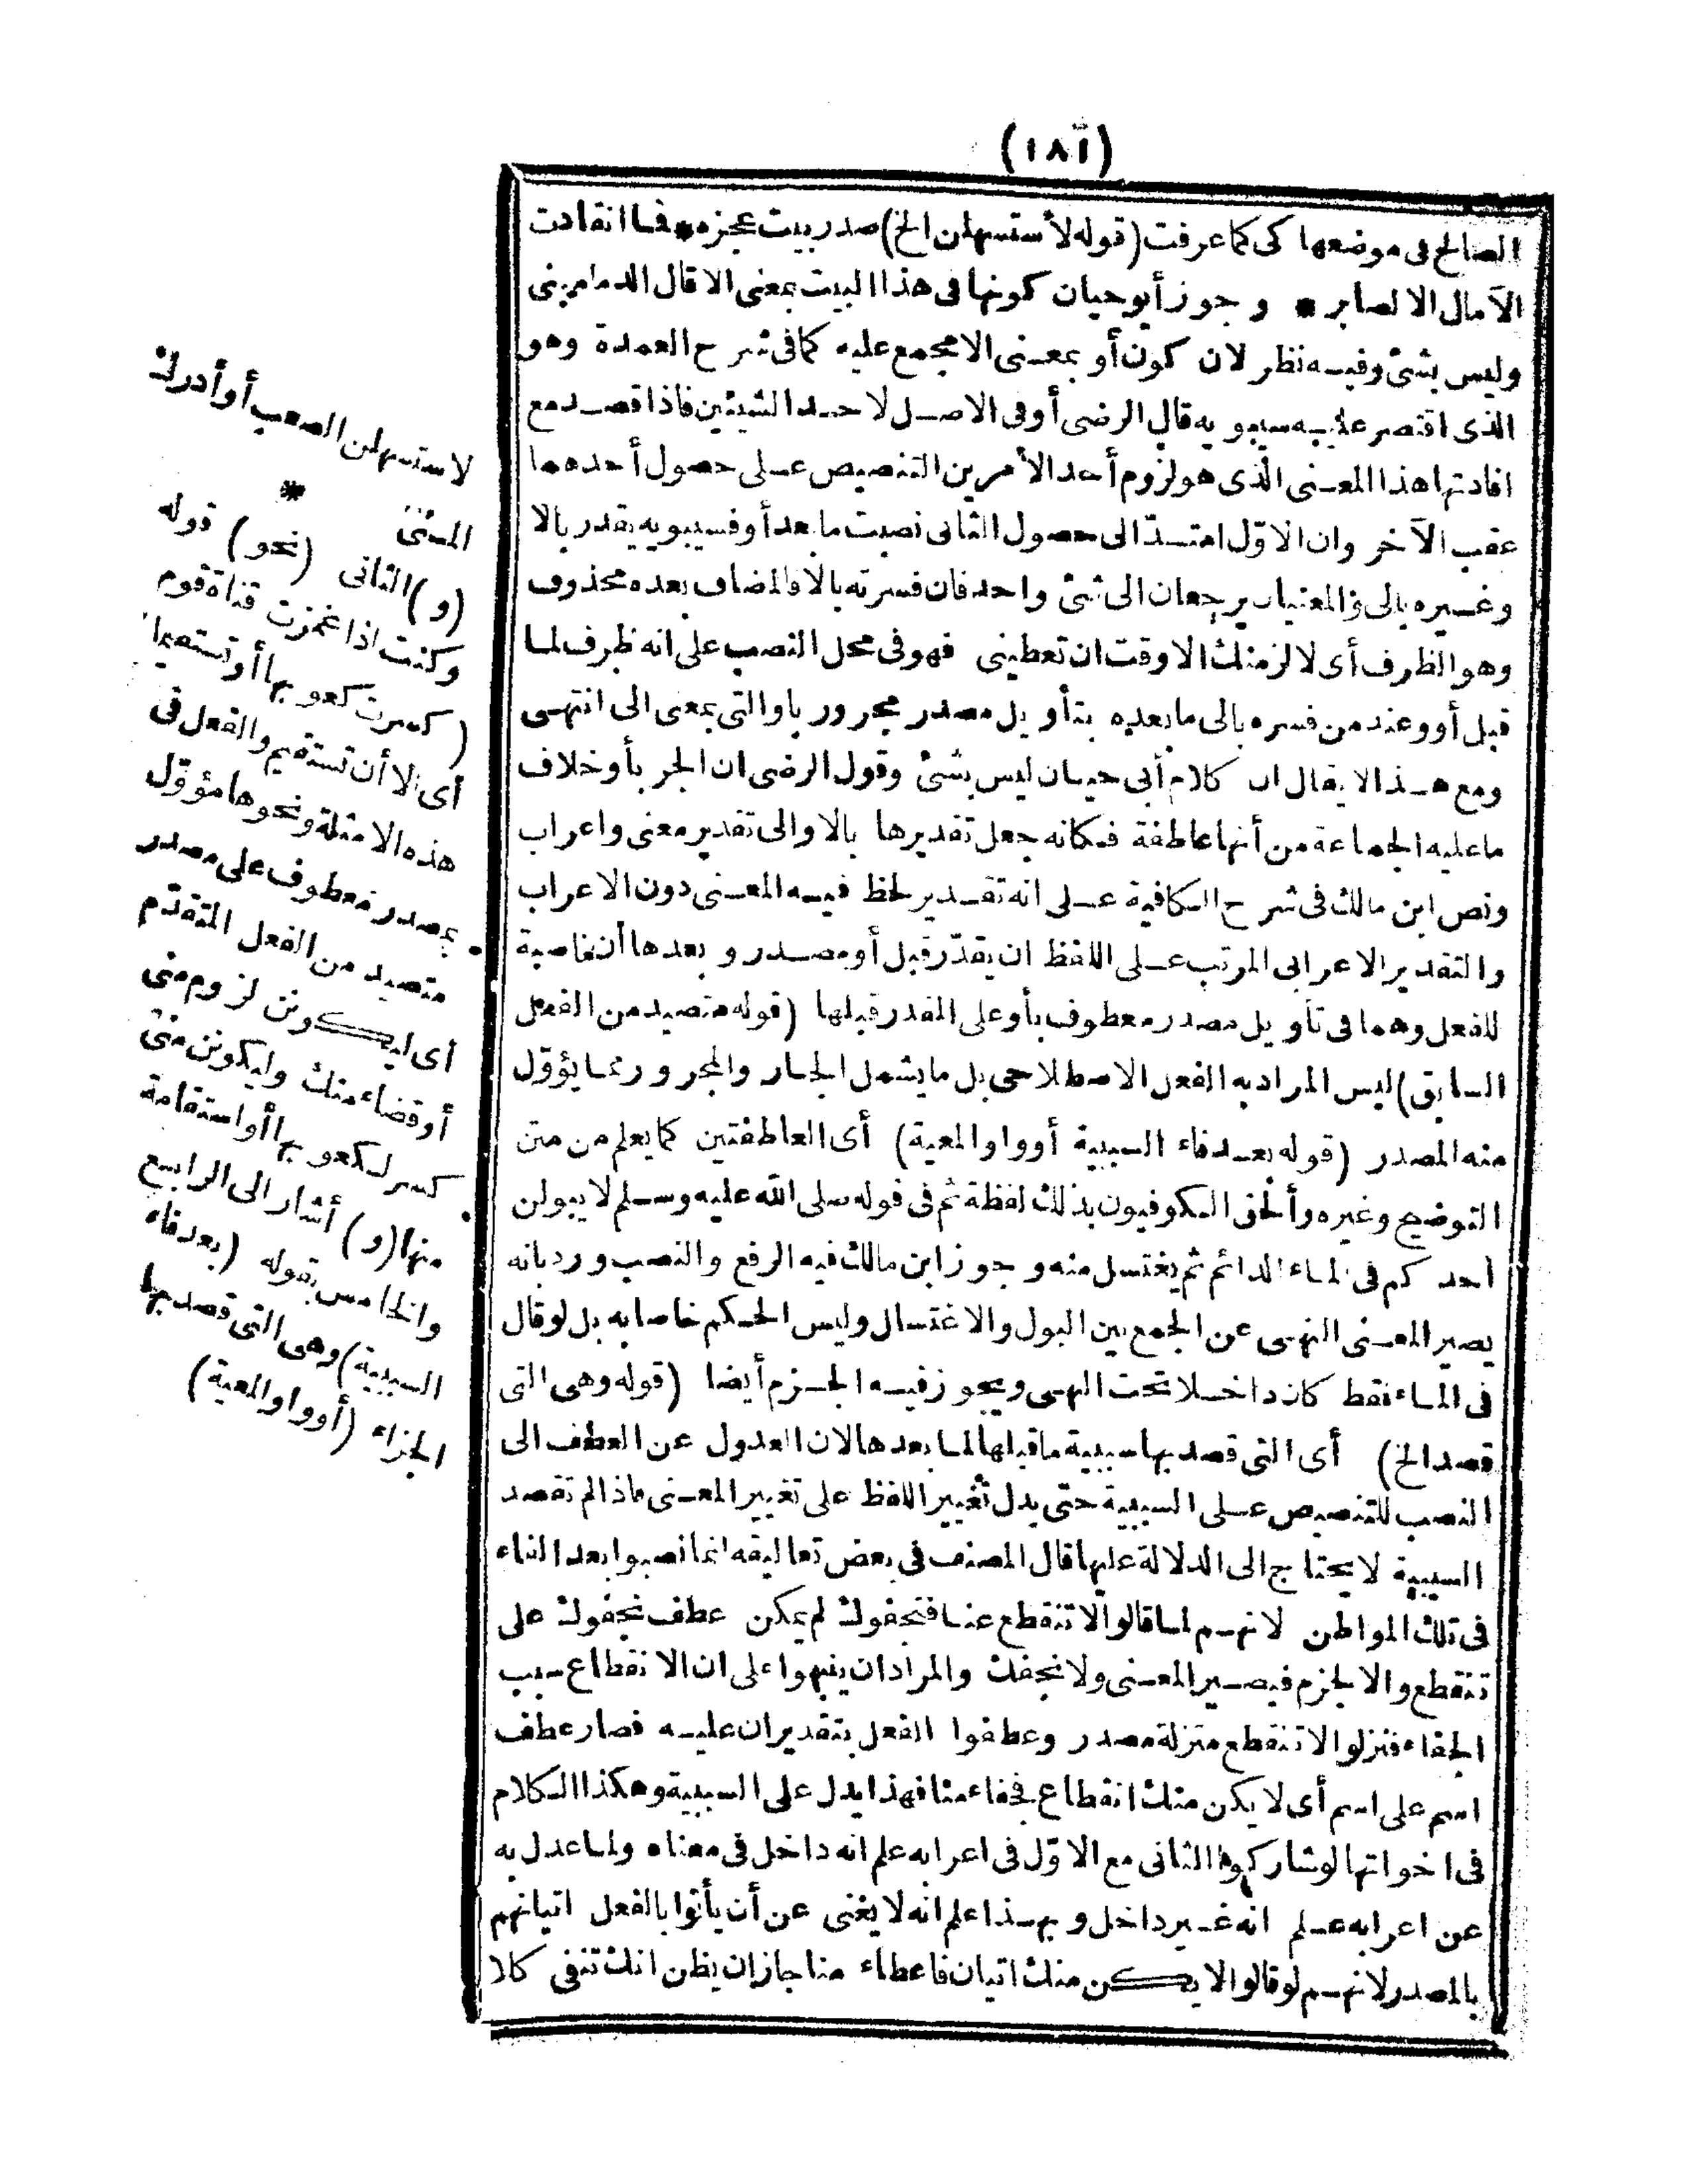 (١٨٦)
الصالح فى موضعها كى كما عرفت (قوله لأستسهلن الخ) صدر بيت عجزه * فما انقادت
الآمال الا لصابر * وجوز أبو حيان كونها فى هذا البيت بمعنى الا قال الدمامينى
وليس بشئ وفيه نظر لان كون أو بمعنى الا مجمع عليه كما فى شرح العمدة وهو
الذى اقتصر عليه سيبويه قال الرضى أو فى الاصل لاحد الشيئين فاذا قصد مع
افادتها هذا المعنى الذى هو لزوم أحد الأمرين التنصيص على حصول أحدهما
عقب الآخر وان الاوّل امتدّ الى حصول الثانى نصبت ما بعد أو فسيبويه يقدر بالا
وغيره بالى والمعنيان يرجعان الى شئ واحد فان فسرته بالا فالمضاف بعده محذوف
وهو الظرف أى لالزمنك الا وقت ان تعطينى فهو فى محل النصب على انه ظرف لما
قبل أو وعند من فسره بالى ما بعده بتأويل مصدر مجرور باو التى بمعنى الى انتهى
ومع هذا لا يقال ان كلام أبى حيان ليس بشئ وقول الرضى ان الجر بأو خلاف
ما عليه الجماعة من أنها عاطفة فكانه جعل تقديرها بالا والى تقدير معنى واعراب
ونص ابن مالك فى شرح الكافية على انه تقدير لحظ فيه المعنى دون الاعراب
والتقدير الاعرابى المرتب على اللفظ ان يقدّر قبل أو مصدر وبعدها أن ناصبة
للفعل وهما فى تأويل مصدر معطوف بأو على المقدر قبلها (قوله متصيد من الفعل
السابق) ليس المراد به الفعل الاصطلاحى بل ما يشمل الجار والمجرور مما يؤوّل
منه المصدر (قوله بعد فاء السببية أو واو المعية) أى العاطفتين كما يعلم من متن
التوضيح وغيره وألحق الكوفيون بذلك لفظة ثم فى قوله صلى الله عليه وسلم لا يبولن
أحدكم فى الماء الدائم ثم يغتسل منه وجوز ابن مالك فيه الرفع والنصب ورد بانه
يصير المعنى النهى عن الجمع بين البول والاغتسال وليس الحكم خاصا به بل لو قال
فى الماء فقط كان داخلا تحت النهى ويجوز فيه الجزم أيضا (قوله وهى التى
قصد الخ) أى التى قصد بها سببية ما قبلها لما بعدها لان العدول عن العطف الى
النصب للتنصيص على السببية حتى يدل تغيير اللفظ على تغيير المعنى فاذا لم تقصد
السببية لا يحتاج الى الدلالة عليها قال المصنف فى بعض تعاليقه انما نصبوا بعد الفاء
فى تلك المواطن لانهم لما قالوا لا تنقطع عنا فنجفوك لم يمكن عطف نجفوك على
تنقطع والا لجزم فيصير المعنى ولا نجفك والمراد ان ينبهوا على ان الانقطاع سبب
الجفاء فنزلوا لا تنقطع منزلة مصدر وعطفوا الفعل بتقدير ان عليه فصار عطف
اسم على اسم أى لا يكن منك انقطاع فجفاء منا فهذا يدل على السببية وهكذا الكلام
فى اخواتها لو شاركوا الثانى مع الاوّل فى اعرابه علم انه داخل فى معناه ولما عدل به
عن اعرابه علم انه غير داخل وبهذا علم انه لا يغنى عن أن يأتوا بالفعل اتيانهم
بالمصدر لانهم لو قالوا لا يكن منك اتيان فاعطاء منا جاز ان يظن انك تنفى كلا
لاستسهلن الصعب أو أدرك
المنى *
(و) الثانى (نحو) قوله
وكنت اذا غمزت قناة قوم
(كسرت كعوبها أو تستقيما)
أى الا أن تستقيم والفعل فى
هذه الامثلة ونحوها مؤوّل
بمصدر معطوف على مصدر
متصيد من الفعل المتقدّم
أى ليكونن لزوم منى
أو قضاء منك وليكونن منى
كسر لكعوبها أو استقامة
منها (و) أشار الى الرابع
والخامس بقوله (بعد فاء
السببية) وهى التى قصد بها
الجزاء (أو واو المعية)